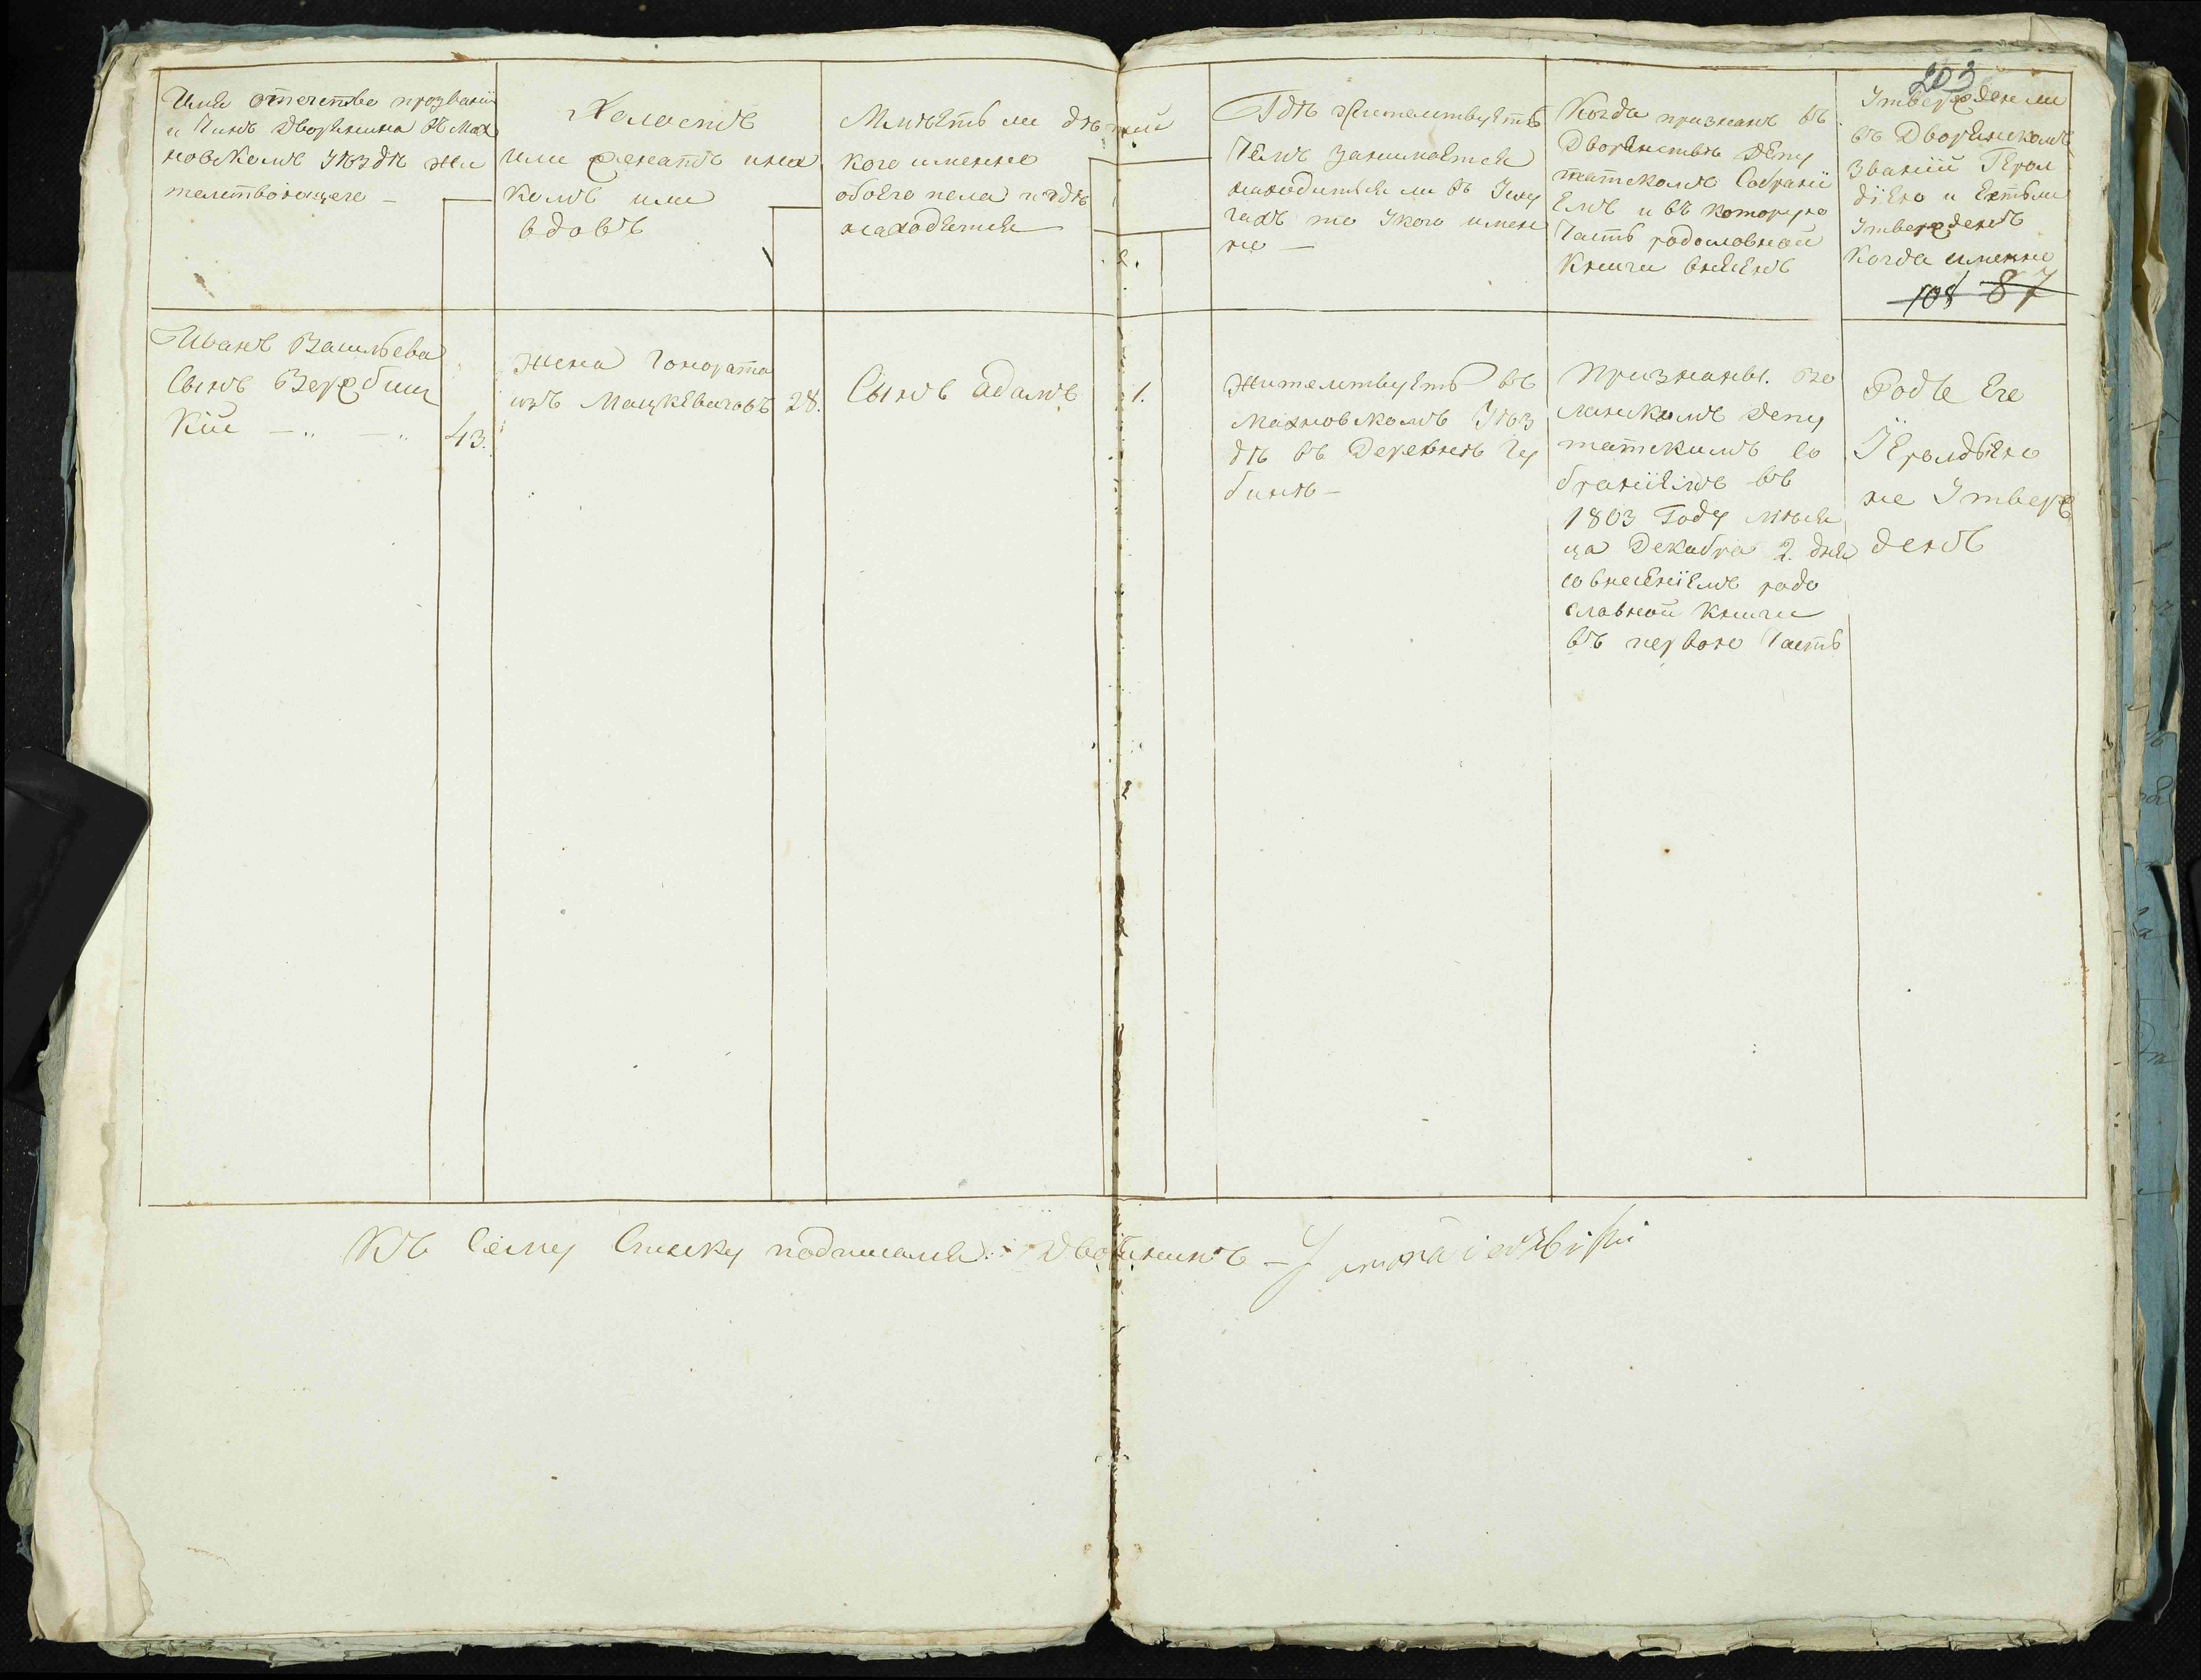 203
Имя отечество прозваніи
и Чинъ Дворянина въ Мах
новскомъ Уѣздѣ жи
телствующего —
Холостъ
или женатъ и на
комъ или
вдовъ
Имѣетъ ли дѣтей
кого именно
обоего пола и гдѣ
находятся
Гдѣ жителствуетъ
Чемъ занимается
находиться ли въ Услу
гахъ то Укого имен
но —
Когда признанъ въ
Дворянствѣ Депу
татскомъ Собрані
емъ и въ которую
Часть родословной
Книги внесенъ
Утвержден ли
въ Дворянскомъ
Званіи Герол
діею и Естьли
Утвержденъ
Когда именно
108 87
Иванъ Васильева
Сынъ Вержбиц
Кій — „ — „
43.
жена Гонората
изъ Мацкевичовъ
28.
Сынъ Адамъ
1.
жителствуетъ въ
Махновскомъ Уѣз
дѣ въ Деревнѣ Гу
бинѣ —
Признанъ. Во
лынскимъ Депу
татскимъ Со
браніемъ въ
1803 Году мѣся
ца Декабра 2. дня
со внесеніемъ родо
словной Книги
въ первою Часть
Родъ Его
Герольдіею
не Утверж
денъ
Къ Сему Списку подписался: Дворянинъ —